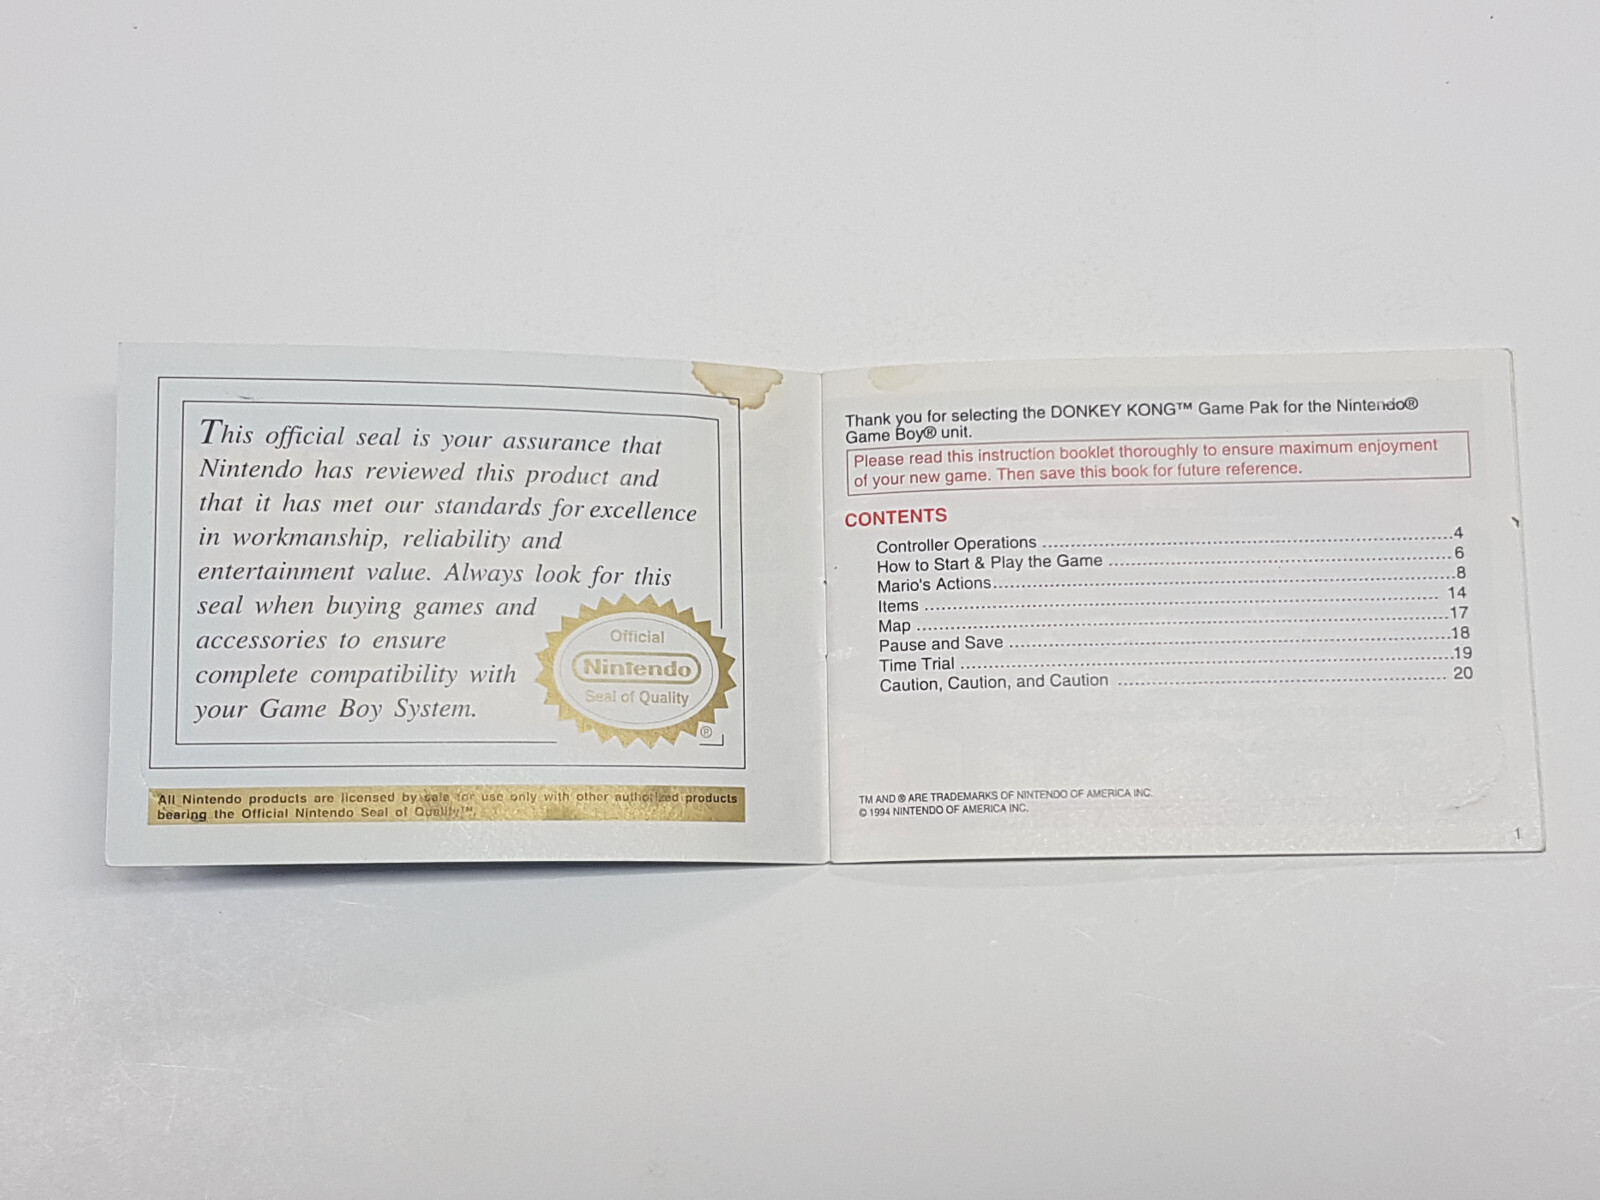 This official seal is your assurance that
Nintendo has reviewed this product and
that it has met our standards for excellence
in workmanship, reliability and
entertainment value. Always look for this
seal when buying games and
accessories to ensure
complete compatibility with
your Game Boy System.
Official
Nintendo
Seal of Quality
®
All Nintendo products are licensed by sale for use only with other authorized products
bearing the Official Nintendo Seal of Quality™.
Thank you for selecting the DONKEY KONG™ Game Pak for the Nintendo®
Game Boy® unit.
Please read this instruction booklet thoroughly to ensure maximum enjoyment
of your new game. Then save this book for future reference.
CONTENTS
Controller Operations ........................................................ 4
How to Start & Play the Game ........................................................ 6
Mario's Actions ........................................................ 8
Items ........................................................ 14
Map ........................................................ 17
Pause and Save ........................................................ 18
Time Trial ........................................................ 19
Caution, Caution, and Caution ........................................................ 20
TM AND ® ARE TRADEMARKS OF NINTENDO OF AMERICA INC.
© 1994 NINTENDO OF AMERICA INC.
1